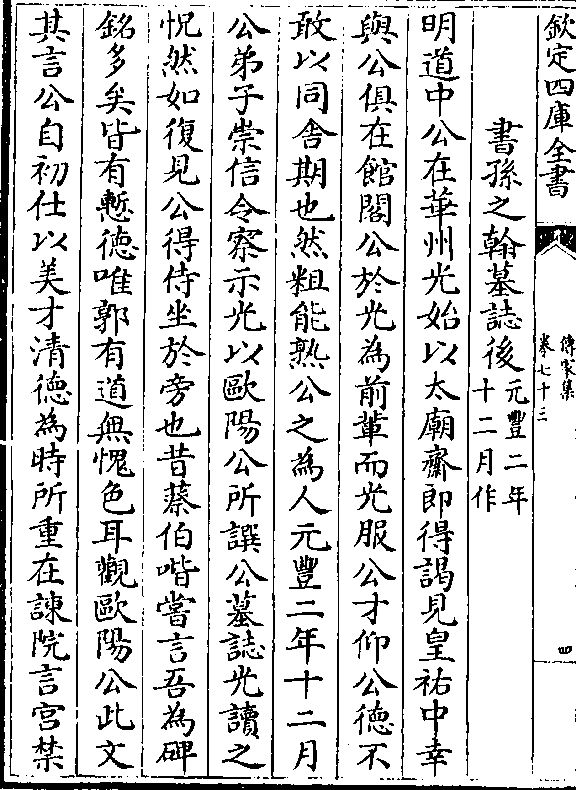 欽定四庫全書
傳家集
卷七十三
四
書孫之翰墓誌後元豐二年
十二月作
明道中公在華州光始以太廟齋郎得謁見皇祐中幸
與公俱在館閣公於光為前輩而光服公才仰公德不
敢以同舍期也然粗能熟公之為人元豐二年十二月
公弟子崇信令察示光以歐陽公所譔公墓誌光讀之
怳然如復見公得侍坐於旁也昔蔡伯喈嘗言吾為碑
銘多矣皆有慙德唯郭有道無愧色耳觀歐陽公此文
其言公自初仕以美才清德為時所重在諫院言宮禁